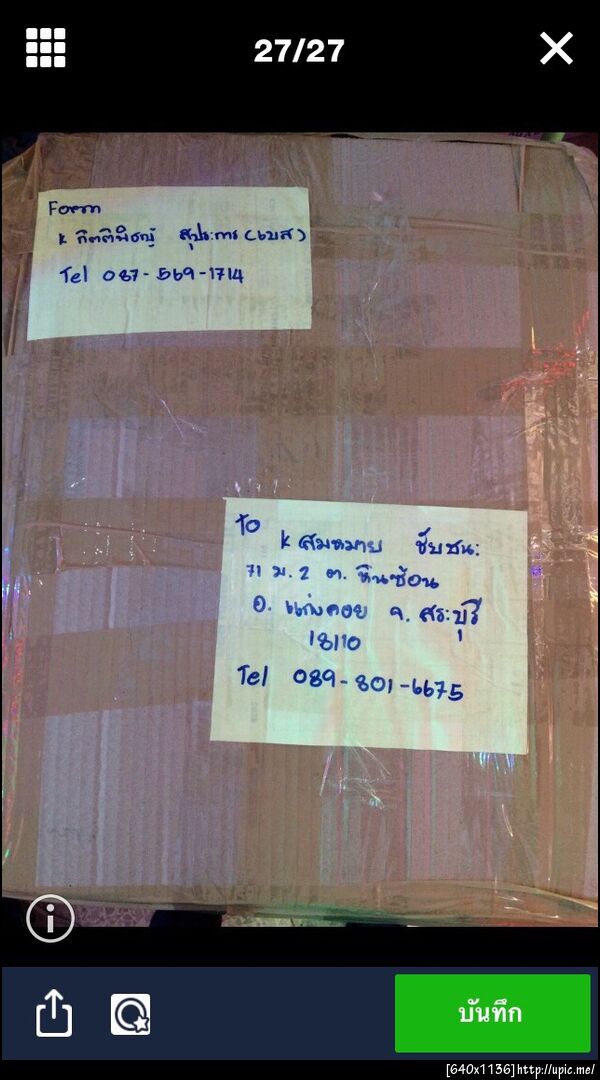 27/27
Form
k กิตติพิชญ์ สุประการ (เบส)
Tel 087-569-1714
To
k สมหมาย ชัยชนะ
71 ม.2 ต. หินซ้อน
อ. แก่งคอย จ. สระบุรี
18110
Tel 089-801-6675
บันทึก
[640x1136] http://upic.me/